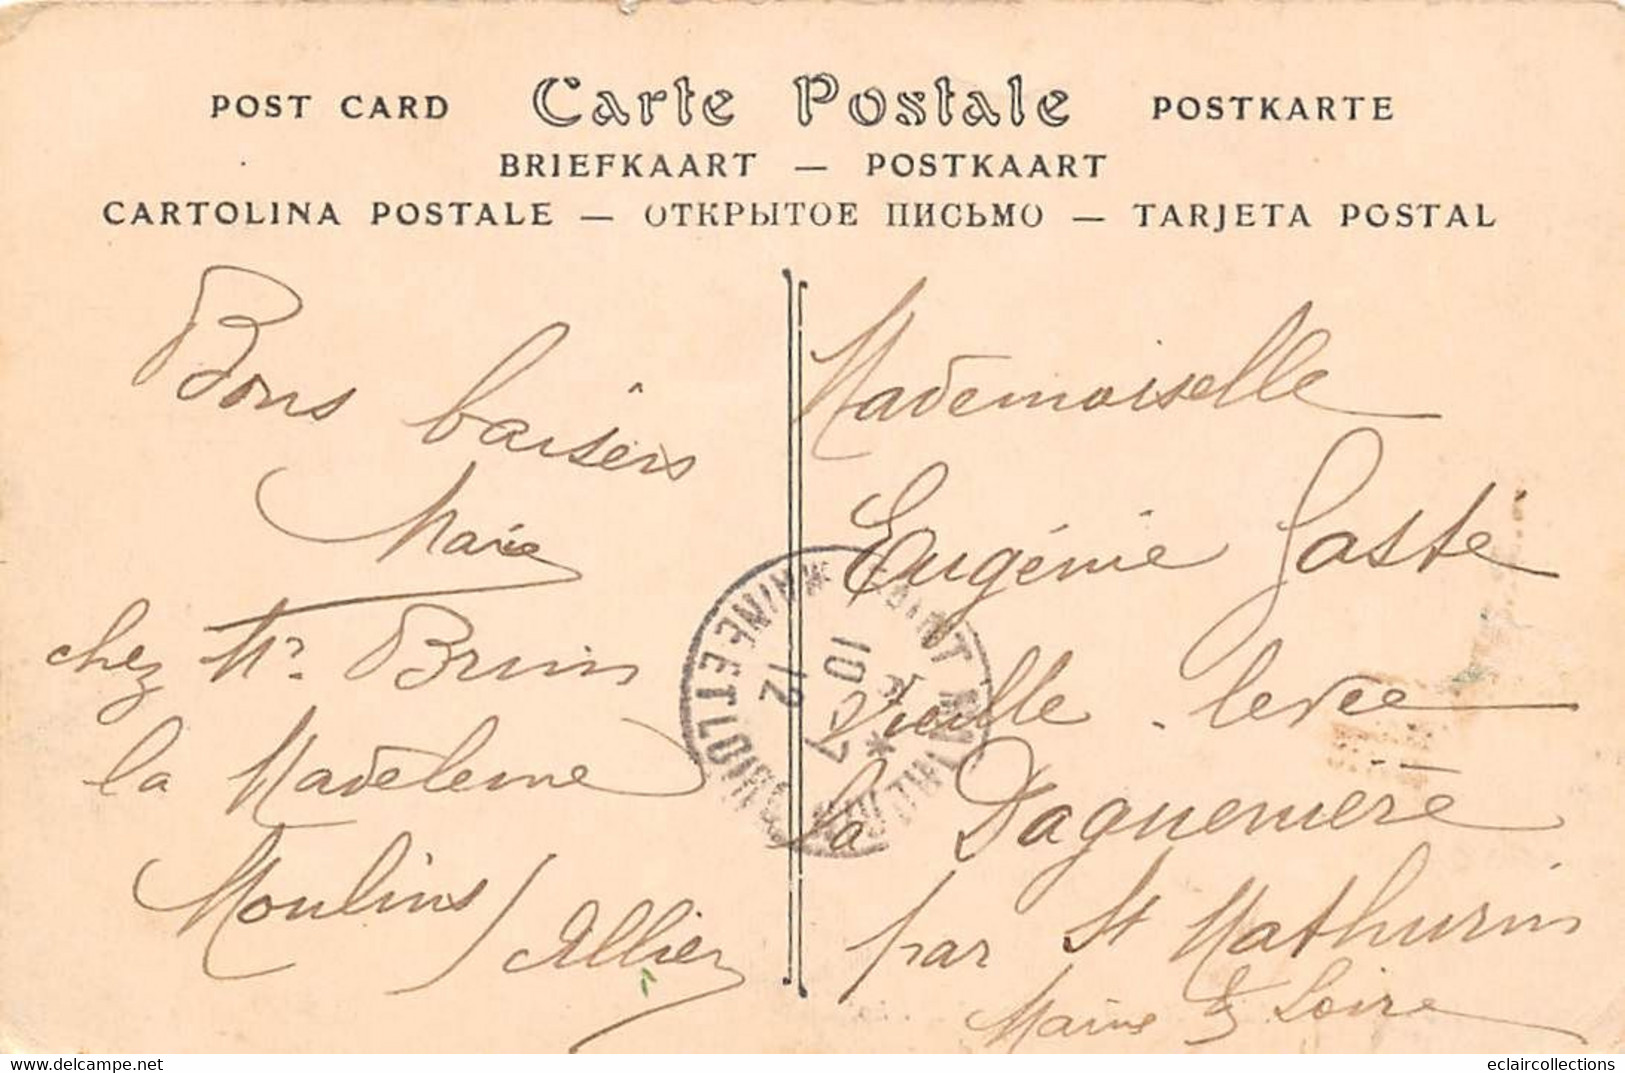 POST CARD Carte Postale POSTKARTE
BRIEFKAART — POSTKAART
CARTOLINA POSTALE — ОТКРЫТОЕ ПИСЬМО — TARJETA POSTAL
Bons baisêrs
Marie
chez Mr. Brun
la Madeleine
Moulins / Allier
Mademoiselle
Eugénie Gasté
Vieille - levée
la Daguenière
par St Mathurin
Maine & Loire
SAINT MATHURIN
MAINE ET LOIRE
10-7
12
www.delcampe.net
eclaircollections